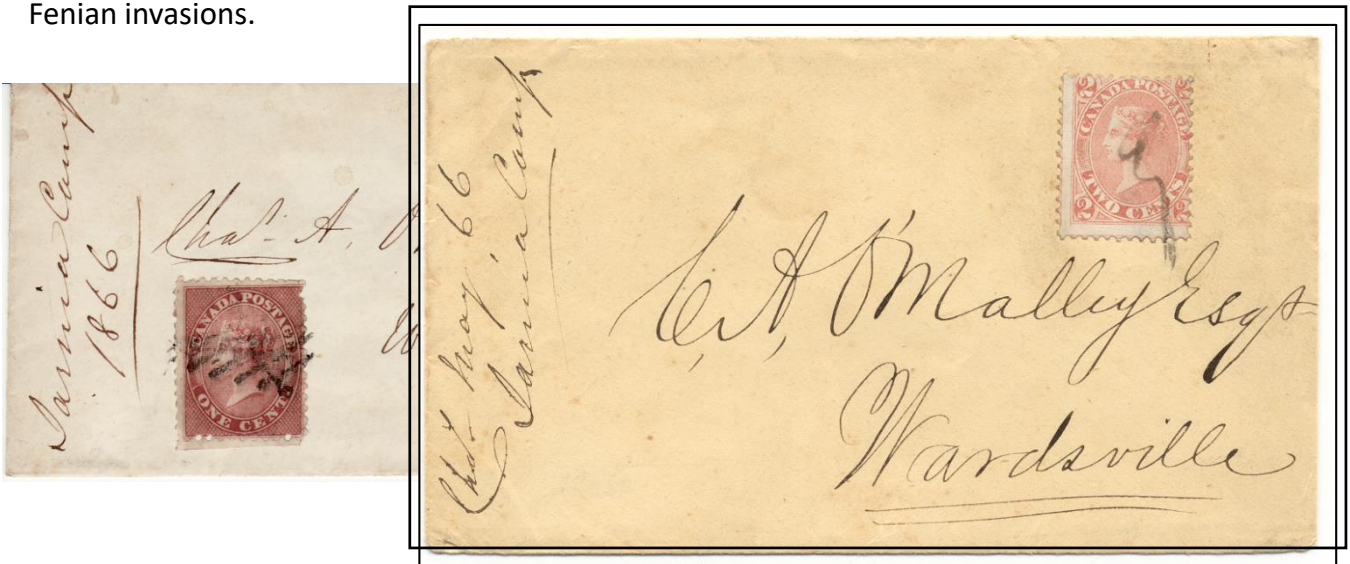 Fenian invasions.
Sarnia Camp
1866
Chas. A. O
CANADA POSTAGE
ONE CENT
Chas. May '66
Sarnia Camp
2 2
CANADA POSTAGE
2 TWO CENTS 2
C. A. O'Malley Esqr
Wardsville